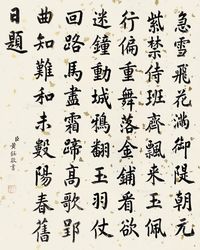 急雪飛花滿御堤朝元
紫禁侍班齊飄來玉佩
行偏重舞落金鋪看欲
迷鐘動城鴉翻玉羽仗
回路馬盡霜蹄高歌郢
曲知難和未數陽春舊
日題
臣黃敬書